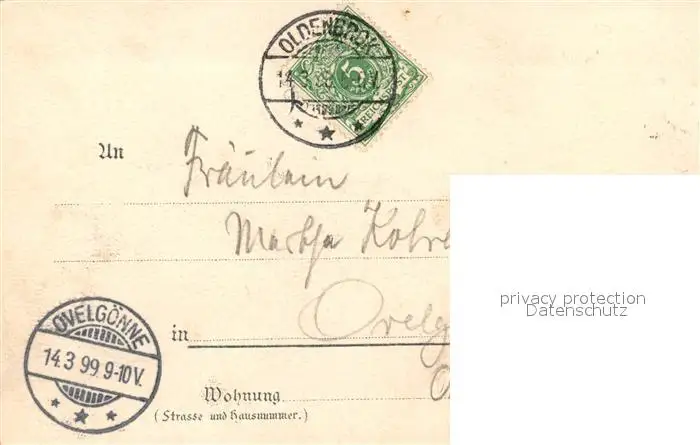 OLDENBROK
14.3.99
5
REICHSPOST
An
Fräulein
Martha
in
OVELGÖNNE
14.3.99.9-10V.
Wohnung
(Strasse und Hausnummer.)
privacy protection
Datenschutz